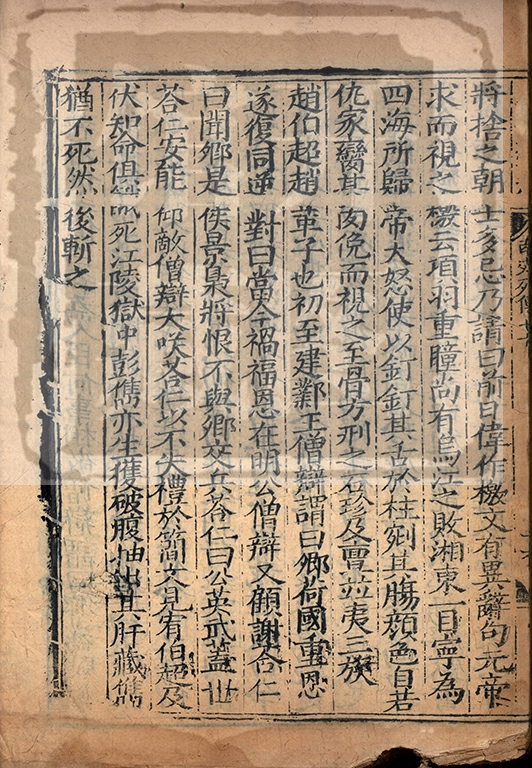 將捨之朝士多忌乃請曰前日偉作檄文有異辭句元帝
求而視之檄云項羽重瞳尚有烏江之敗湘東一目寧為
四海所歸帝大怒使以釘釘其舌於柱剜其腸顔色自若
仇家臠其肉俛而視之至骨方刑之石珍及亶並夷三族
趙伯超趙革子也初至建鄴王僧辯謂曰卿荷國重恩
遂復同逆對曰當今禍福恩在明公僧辯又顧謝荅仁
曰聞卿是侯景梟將恨不與卿交兵荅仁曰公英武蓋世
荅仁安能仰敵僧辯大咲荅仁以不失禮於簡文見宥伯超及
伏知命俱餓死江陵獄中彭儁亦生獲破腹抽出其肝藏儁
猶不死然後斬之